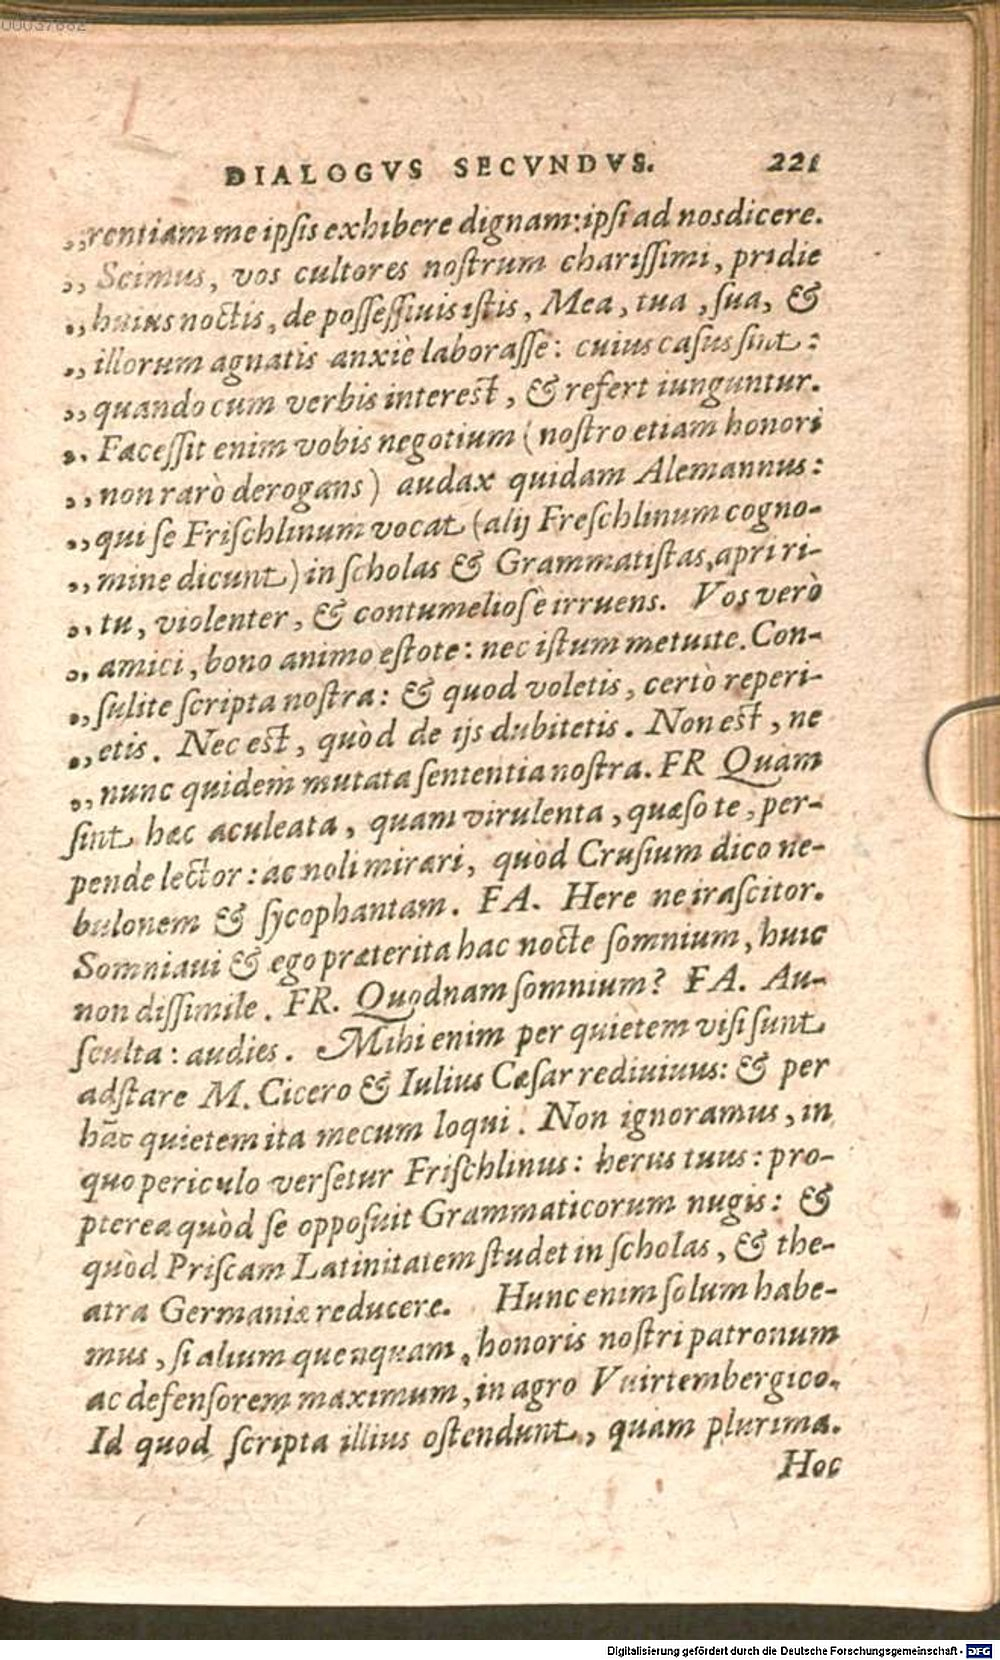 00037882
DIALOGVS SECVNDVS. 221
„rentiam me ipſis exhibere dignam: ipſi ad nos dicere.
„Scimus, vos cultores noſtrum chariſſimi, pridie
„huius noctis, de poſſeſſiuis iſtis, Mea, tua, ſua, &
„illorum agnatis anxiè laboraſſe: cuius caſus ſint:
„quando cum verbis intereſt, & refert iunguntur.
„Faceſſit enim vobis negotium (noſtro etiam honori
„non rarò derogans) audax quidam Alemannus:
„qui ſe Friſchlinum vocat (alij Freſchlinum cogno-
„mine dicunt) in ſcholas & Grammatiſtas, apri ri-
„tu, violenter, & contumelioſè irruens. Vos verò
„amici, bono animo eſtote: nec iſtum metuite. Con-
„ſulite ſcripta noſtra: & quod voletis, certò reperi-
„etis. Nec eſt, quòd de ijs dubitetis. Non eſt, ne
„nunc quidem mutata ſententia noſtra. FR Quàm
ſint hæc aculeata, quam virulenta, quæſo te, per-
pende lector: ac noli mirari, quòd Cruſium dico ne-
bulonem & ſycophantam. FA. Here ne iraſcitor.
Somniaui & ego præterita hac nocte ſomnium, huic
non diſſimile. FR. Quodnam ſomnium? FA. Au-
ſculta: audies. Mihi enim per quietem viſi ſunt
adſtare M. Cicero & Iulius Cæſar rediuiuus: & per
hāc quietem ita mecum loqui. Non ignoramus, in
quo periculo verſetur Friſchlinus: herus tuus: pro-
pterea quòd ſe oppoſuit Grammaticorum nugis: &
quòd Priſcam Latinitatem ſtudet in ſcholas, & the-
atra Germaniæ reducere. Hunc enim ſolum habe-
mus, ſi alium quenquam, honoris noſtri patronum
ac defenſorem maximum, in agro Vuirtembergico.
Id quod ſcripta illius oſtendunt, quàm plurima.
Hoc
Digitalisierung gefördert durch die Deutsche Forschungsgemeinschaft - DFG